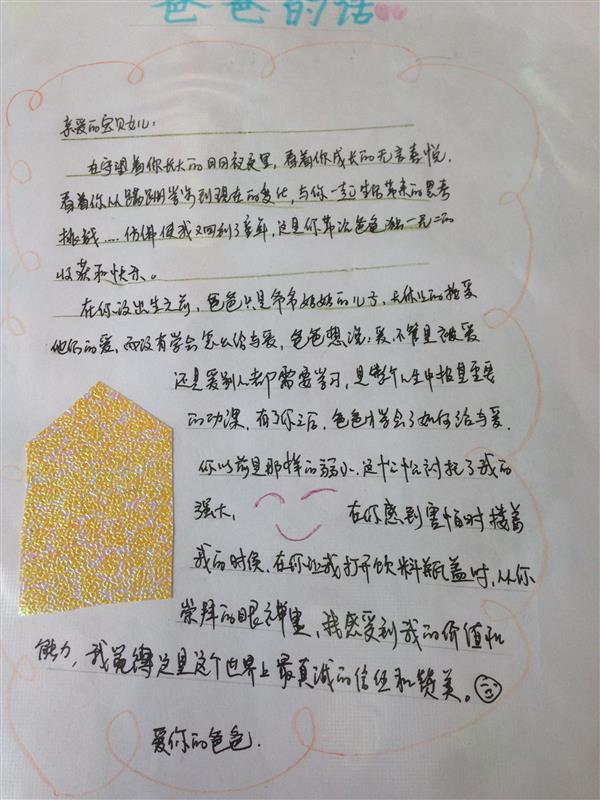 爸爸的话
亲爱的宝贝女儿：
在守望着你长大的日日夜夜里，看着你成长的无言喜悦，
看着你从蹒跚学步到现在的变化，与你一起生活带来的思考
挑战……仿佛使我又回到了童年，这是你带给爸爸独一无二的
收获和快乐。
在你没出生之前，爸爸只是爷爷奶奶的儿子，大你的接受
他们的爱，而没有学会怎么给与爱，爸爸想说：爱，不管是被爱
还是爱别人都需要学习，是整个人生中相当重要
的功课，有了你之后，爸爸才学会了如何给与爱，
你以前是那样的弱小，这恰恰衬托了我的
强大， 在你感到害怕时搂着
我的时候，在你让我打开饮料瓶盖时，从你
崇拜的眼神里，我感受到我的价值和
能力，我觉得这是这个世界上最真诚的信任和赞美。
爱你的爸爸.